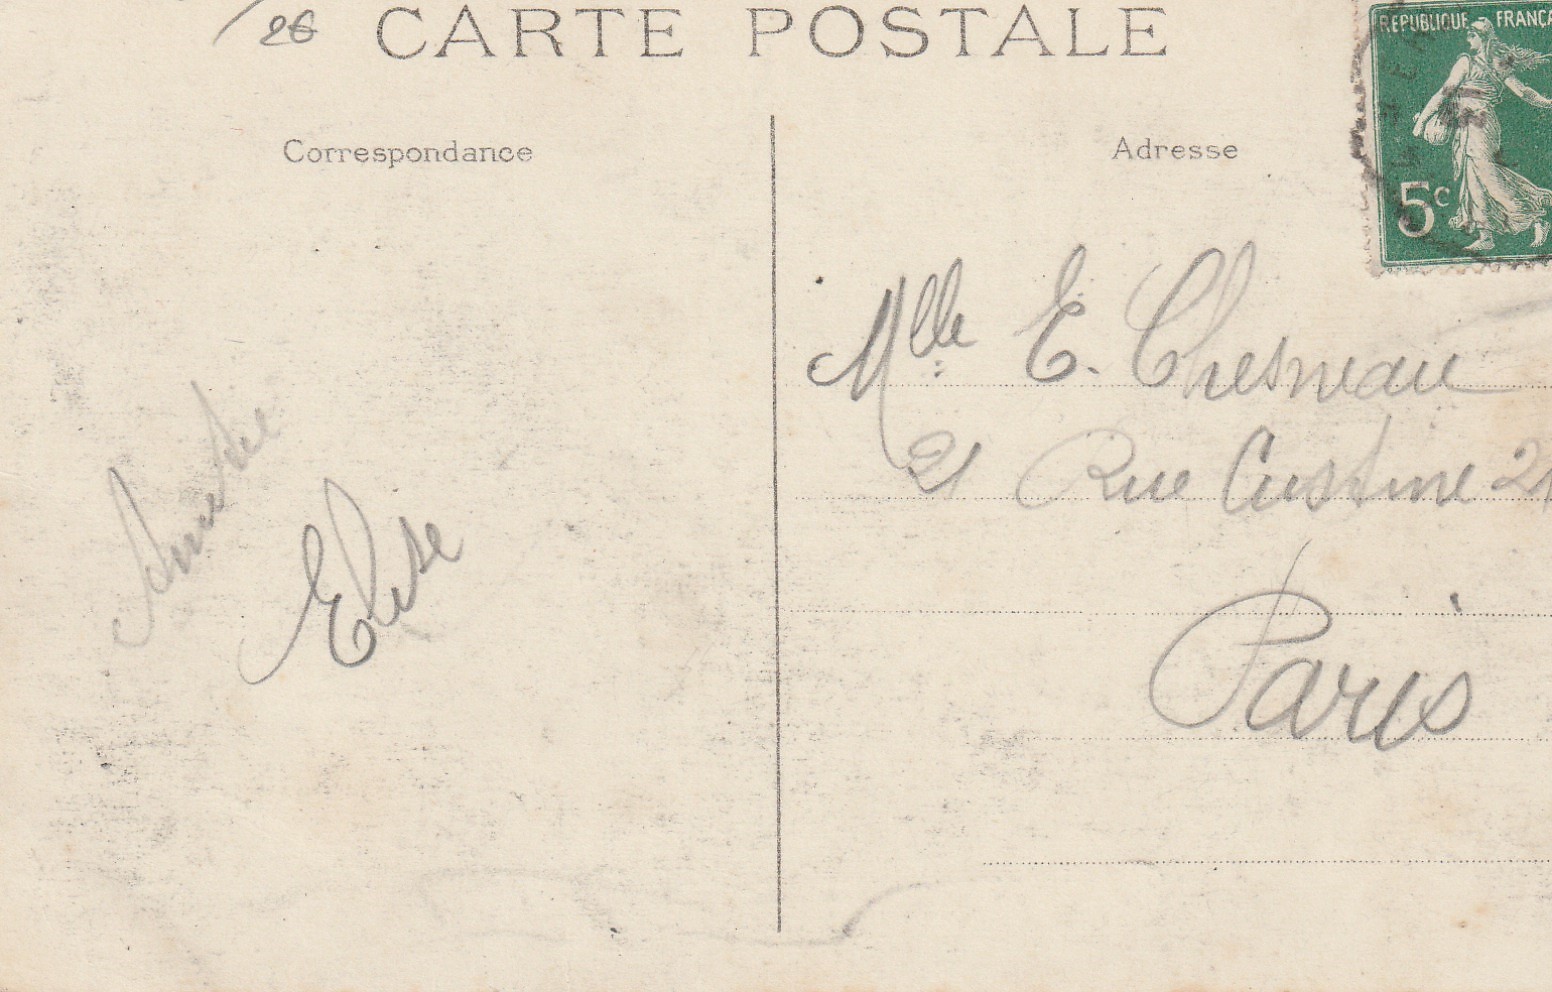 26
CARTE POSTALE
REPUBLIQUE FRANÇA
5c
Correspondance
Adresse
Amitié
Elise
Mlle E. Chesneau
21 Rue Custine 21
Paris